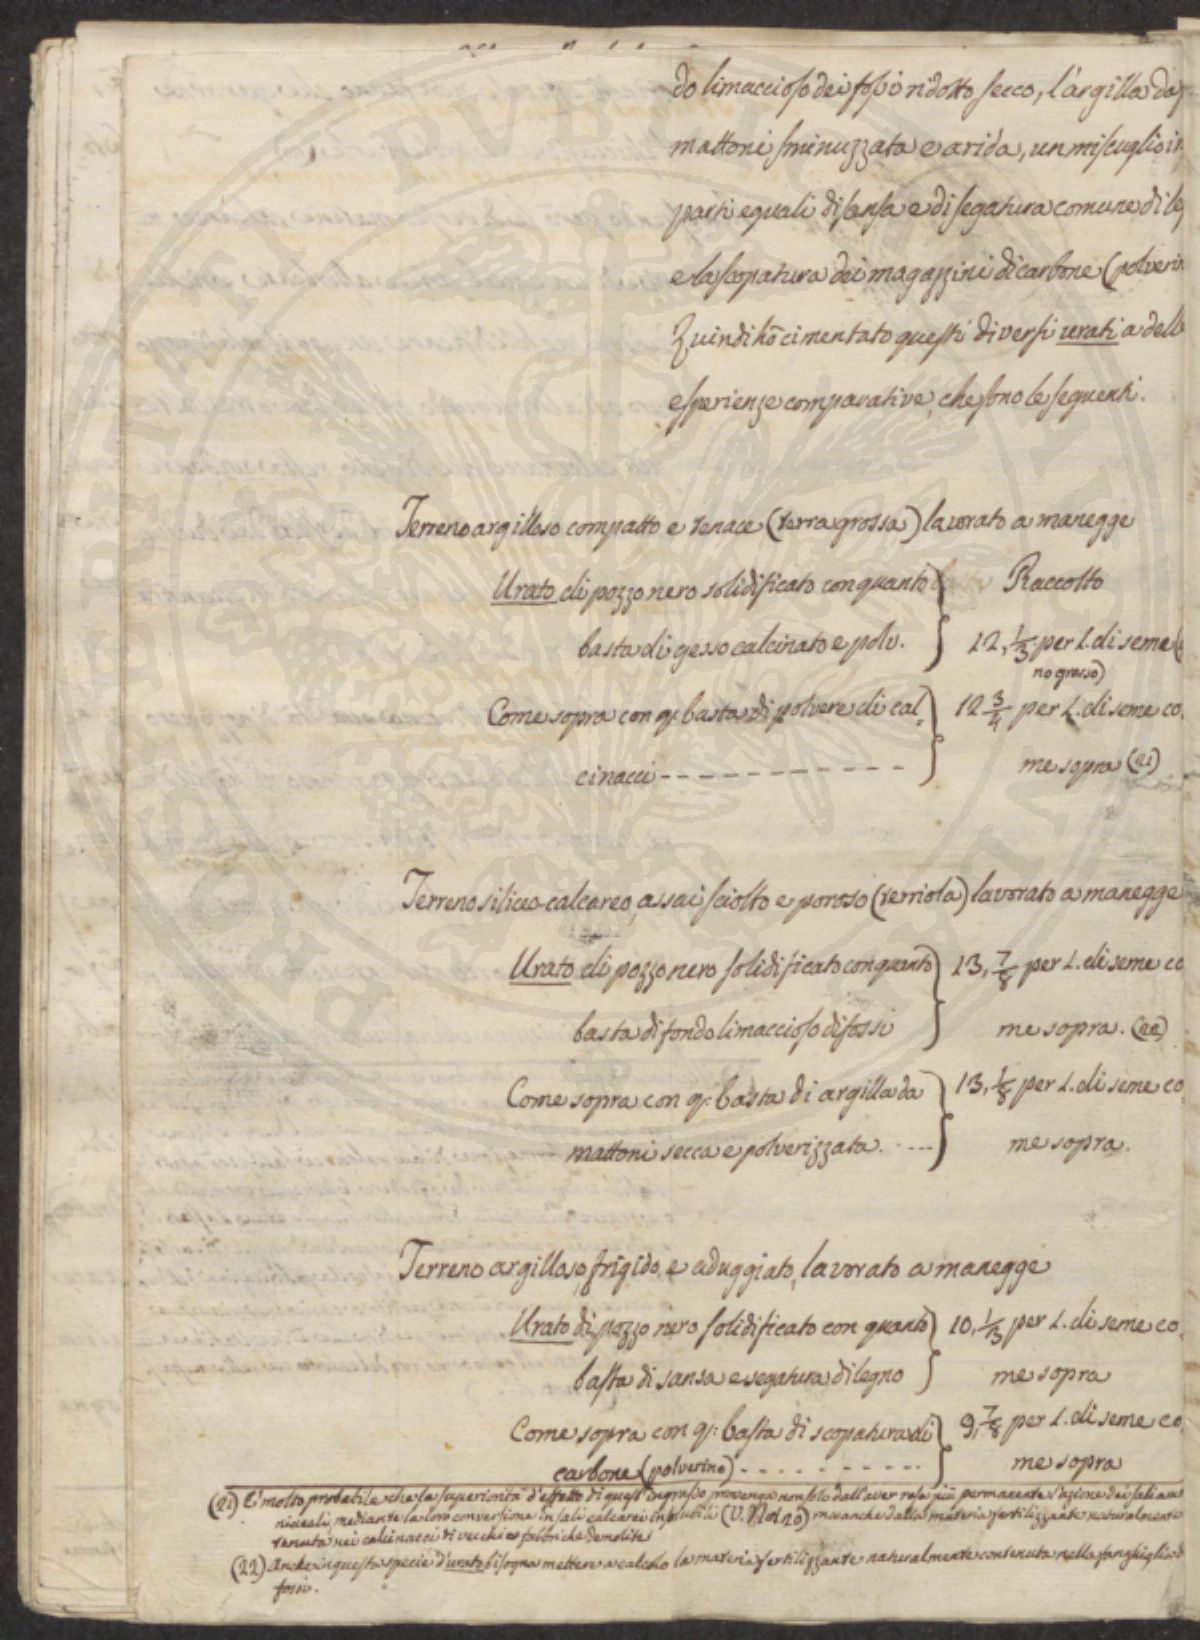 do limaccioso dei fossi ridotto secco, l'argilla da
mattoni sminuzzata e arida, un miscuglio in
parti eguali di sansa e di segatura comune di le
e la scopatura dei magazzini di carbone (polverin
Quindi hò cimentato questi diversi urati a delle
esperienze comparative, che sono le seguenti.
Terreno argilloso compatto e tenace (terra grossa) lavorato a manegge
Urato di pozzo nero solidificato con quanto
basta di gesso calcinato e polv.
Raccolto
12, 1/3 per 1. di seme (
no grosso)
Come sopra con q: basta di polvere di cal
cinacci - - - - - - - - - - - - -
12 3/4 per 1. di seme co
me sopra (21)
Terreno siliceo-calcareo, assai sciolto e poroso (terriola) lavorato a manegge
Urato di pozzo nero solidificato con quanto
basta di fondo limaccioso di fossi
13, 7/8 per 1. di seme co
me sopra. (22)
Come sopra con q: basta di argilla da
mattoni secca e polverizzata. - ---
13, 1/8 per 1. di seme co
me sopra.
Terreno argilloso, frigido, e aduggiato, lavorato a manegge
Urato di pozzo nero solidificato con quanto
basta di sansa e segatura di legno
10, 1/3 per 1. di seme co
me sopra
Come sopra con q: basta di scopatura di
carbone (polverino) - - - - - - - - -
9, 7/8 per 1. di seme co
me sopra
(21) E' molto probabile che la superiorità d'effetto di quest'ingrasso provenga non solo dall'aver resa più permanente l'azione dei sali am
niacali mediante la loro conversione in sali calcarei insolubili (V. Not. 20) ma anche dalla materia fertilizzante naturalmente
tenuta nei calcinacci di vecchie fabbriche demolite
(22) Anche in questa specie d'urato bisogna mettere a calcolo la materia fertilizzante naturalmente contenuta nella fanghiglia d
fossi.